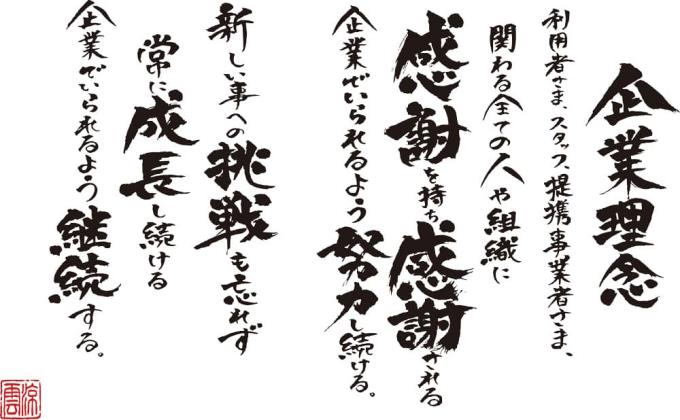 企業理念
利用者さま、スタッフ、提携事業者さま、
関わる全ての人や組織に
感謝を持ち感謝される
企業でいられるよう努力し続ける。
新しい事への挑戦も忘れず
常に成長し続ける
企業でいられるよう継続する。
涼雲